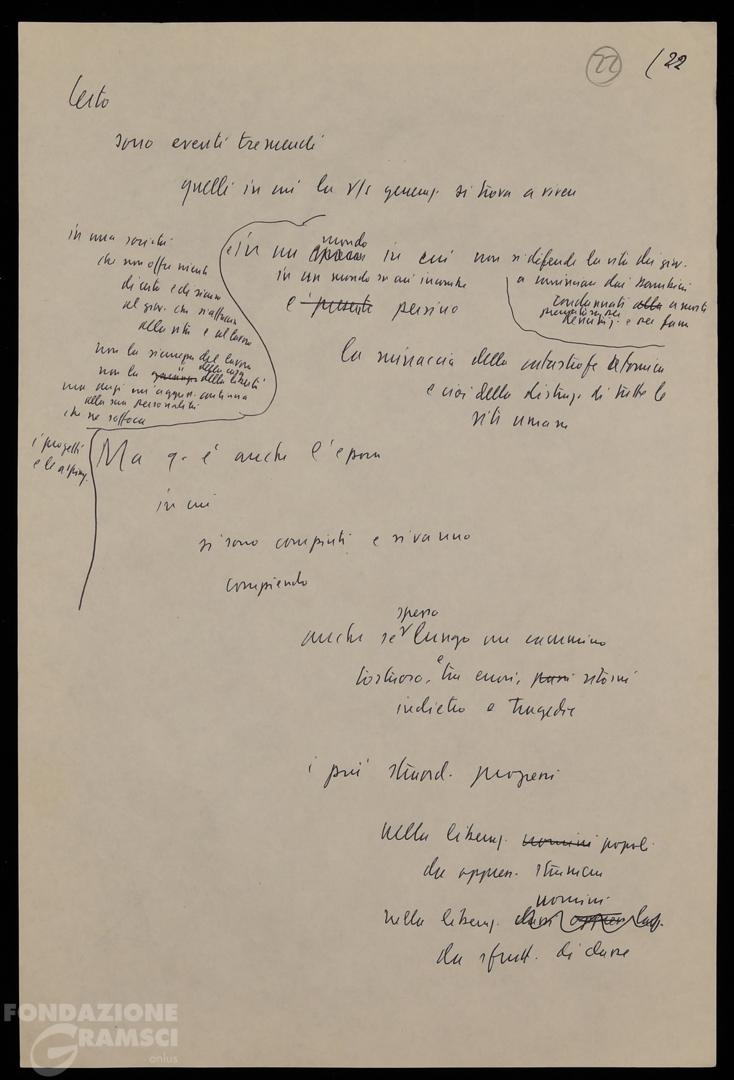 22 / 22
Certo
sono eventi tremendi
quelli in cui la vs generaz. si trova a vivere
in una società
che non offre niente
di certo e di sicuro
al giov. che s'affaccia
alla vita e al lavoro
non la sicurezza del lavoro
della casa
non la della libertà
ma anzi un'aggress. continua
alla sua personalità
che ne soffoca
i progetti
e le aspiraz.
in un mondo in cui non si difende la vita dei giov.
a cominciare dai bambini
condannati alla a morti
premature per
denutriz. e per fame
in un mondo su cui incombe
e presente persino
la minaccia della catastrofe atomica
e cioè della distruz. di tutte le
vite umane
Ma q. è anche l'epoca
in cui
si sono compiuti e si vanno
compiendo
anche se spesso lungo un cammino
tortuoso, e tra errori, passi ritorni
indietro e tragedie
i più straord. progressi
nella liberaz. uomini popoli
da oppress. straniera
nella liberaz. uomini
da sfrutt. di classe
FONDAZIONE
GRAMSCI
onlus